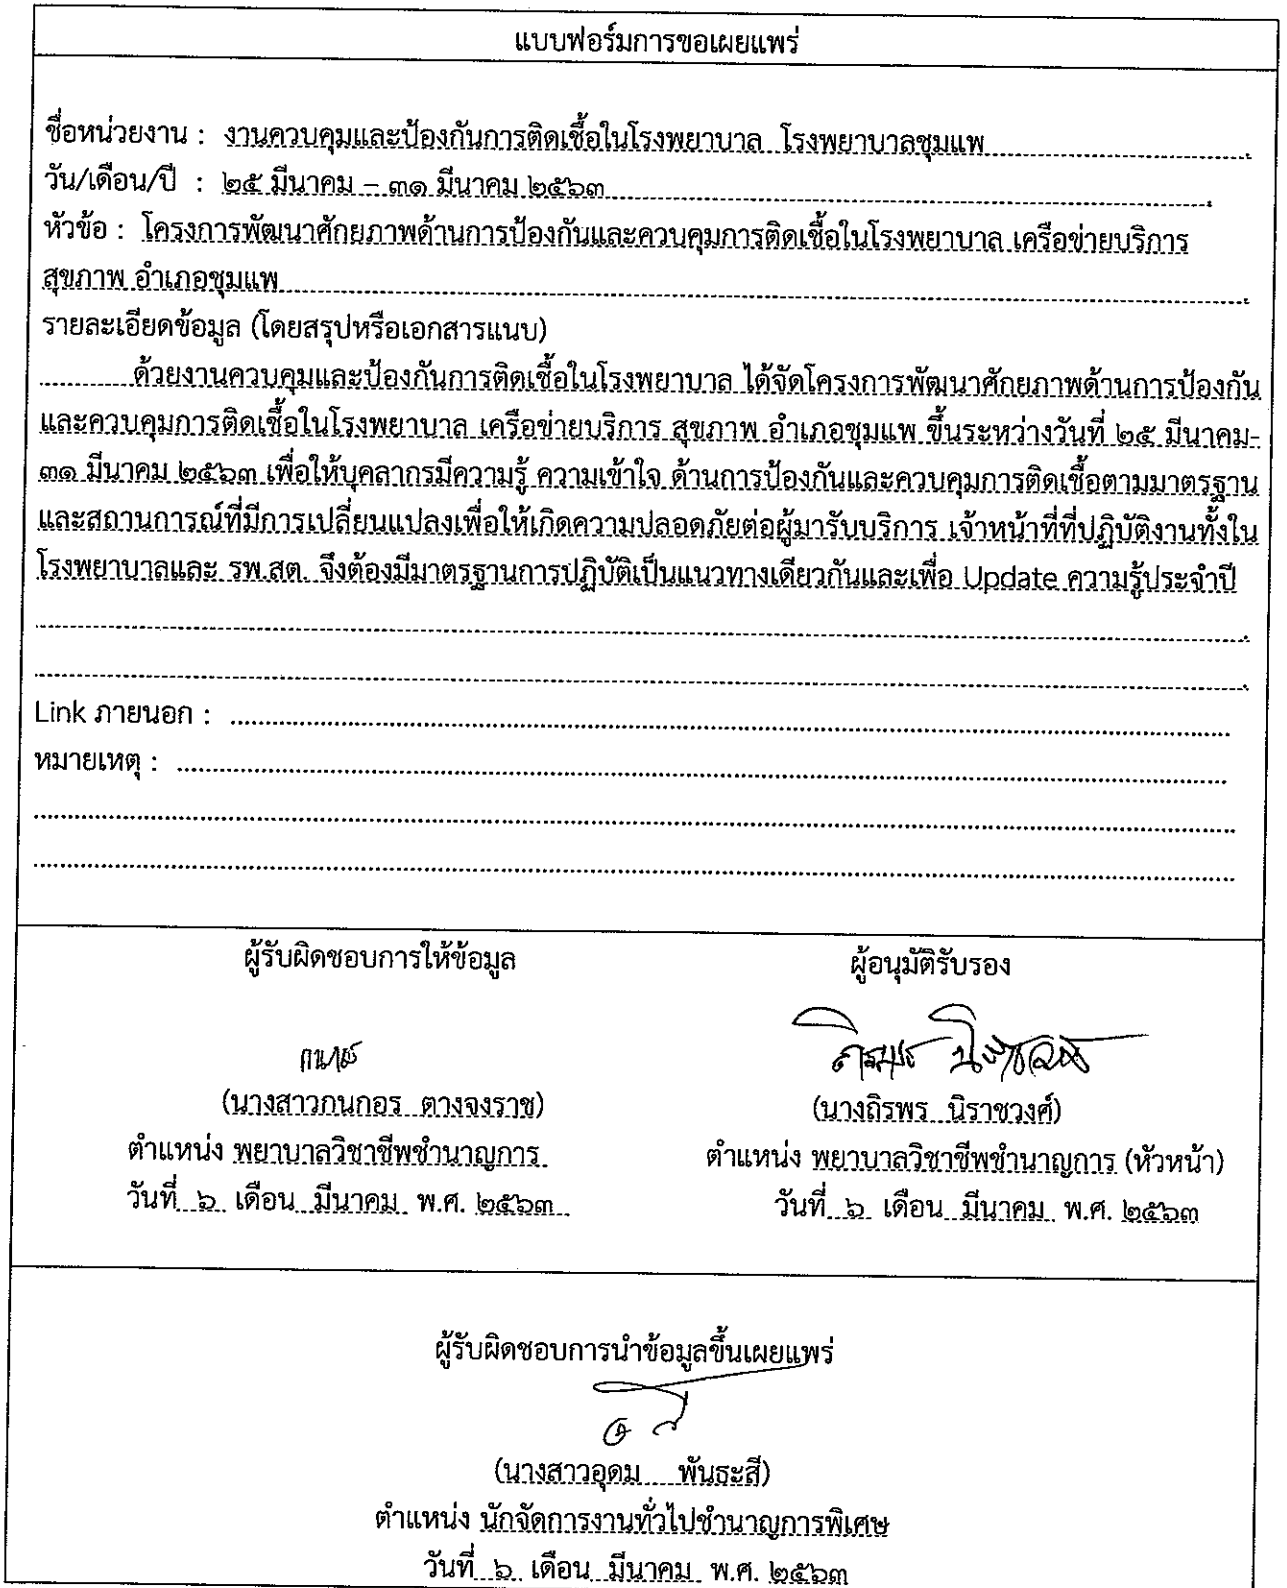 แบบฟอร์มการขอเผยแพร่
ชื่อหน่วยงาน : งานควบคุมและป้องกันการติดเชื้อในโรงพยาบาล โรงพยาบาลชุมแพ
วัน/เดือน/ปี : ๒๕ มีนาคม – ๓๑ มีนาคม ๒๕๖๓
หัวข้อ : โครงการพัฒนาศักยภาพด้านการป้องกันและควบคุมการติดเชื้อในโรงพยาบาล เครือข่ายบริการ
สุขภาพ อำเภอชุมแพ
รายละเอียดข้อมูล (โดยสรุปหรือเอกสารแนบ)
ด้วยงานควบคุมและป้องกันการติดเชื้อในโรงพยาบาล ได้จัดโครงการพัฒนาศักยภาพด้านการป้องกัน
และควบคุมการติดเชื้อในโรงพยาบาล เครือข่ายบริการ สุขภาพ อำเภอชุมแพ ขึ้นระหว่างวันที่ ๒๕ มีนาคม-
๓๑ มีนาคม ๒๕๖๓ เพื่อให้บุคลากรมีความรู้ ความเข้าใจ ด้านการป้องกันและควบคุมการติดเชื้อตามมาตรฐาน
และสถานการณ์ที่มีการเปลี่ยนแปลงเพื่อให้เกิดความปลอดภัยต่อผู้มารับบริการ เจ้าหน้าที่ที่ปฏิบัติงานทั้งใน
โรงพยาบาลและ รพ.สต. จึงต้องมีมาตรฐานการปฏิบัติเป็นแนวทางเดียวกันและเพื่อ Update ความรู้ประจำปี
Link ภายนอก :
หมายเหตุ :
ผู้รับผิดชอบการให้ข้อมูล
(นางสาวกนกอร ตางจงราช)
ตำแหน่ง พยาบาลวิชาชีพชำนาญการ
วันที่ ๖ เดือน มีนาคม พ.ศ. ๒๕๖๓
ผู้อนุมัติรับรอง
ถิรพร นิราชวงศ์
(นางถิรพร นิราชวงศ์)
ตำแหน่ง พยาบาลวิชาชีพชำนาญการ (หัวหน้า)
วันที่ ๖ เดือน มีนาคม พ.ศ. ๒๕๖๓
ผู้รับผิดชอบการนำข้อมูลขึ้นเผยแพร่
(นางสาวอุดม พันธะสี)
ตำแหน่ง นักจัดการงานทั่วไปชำนาญการพิเศษ
วันที่ ๖ เดือน มีนาคม พ.ศ. ๒๕๖๓